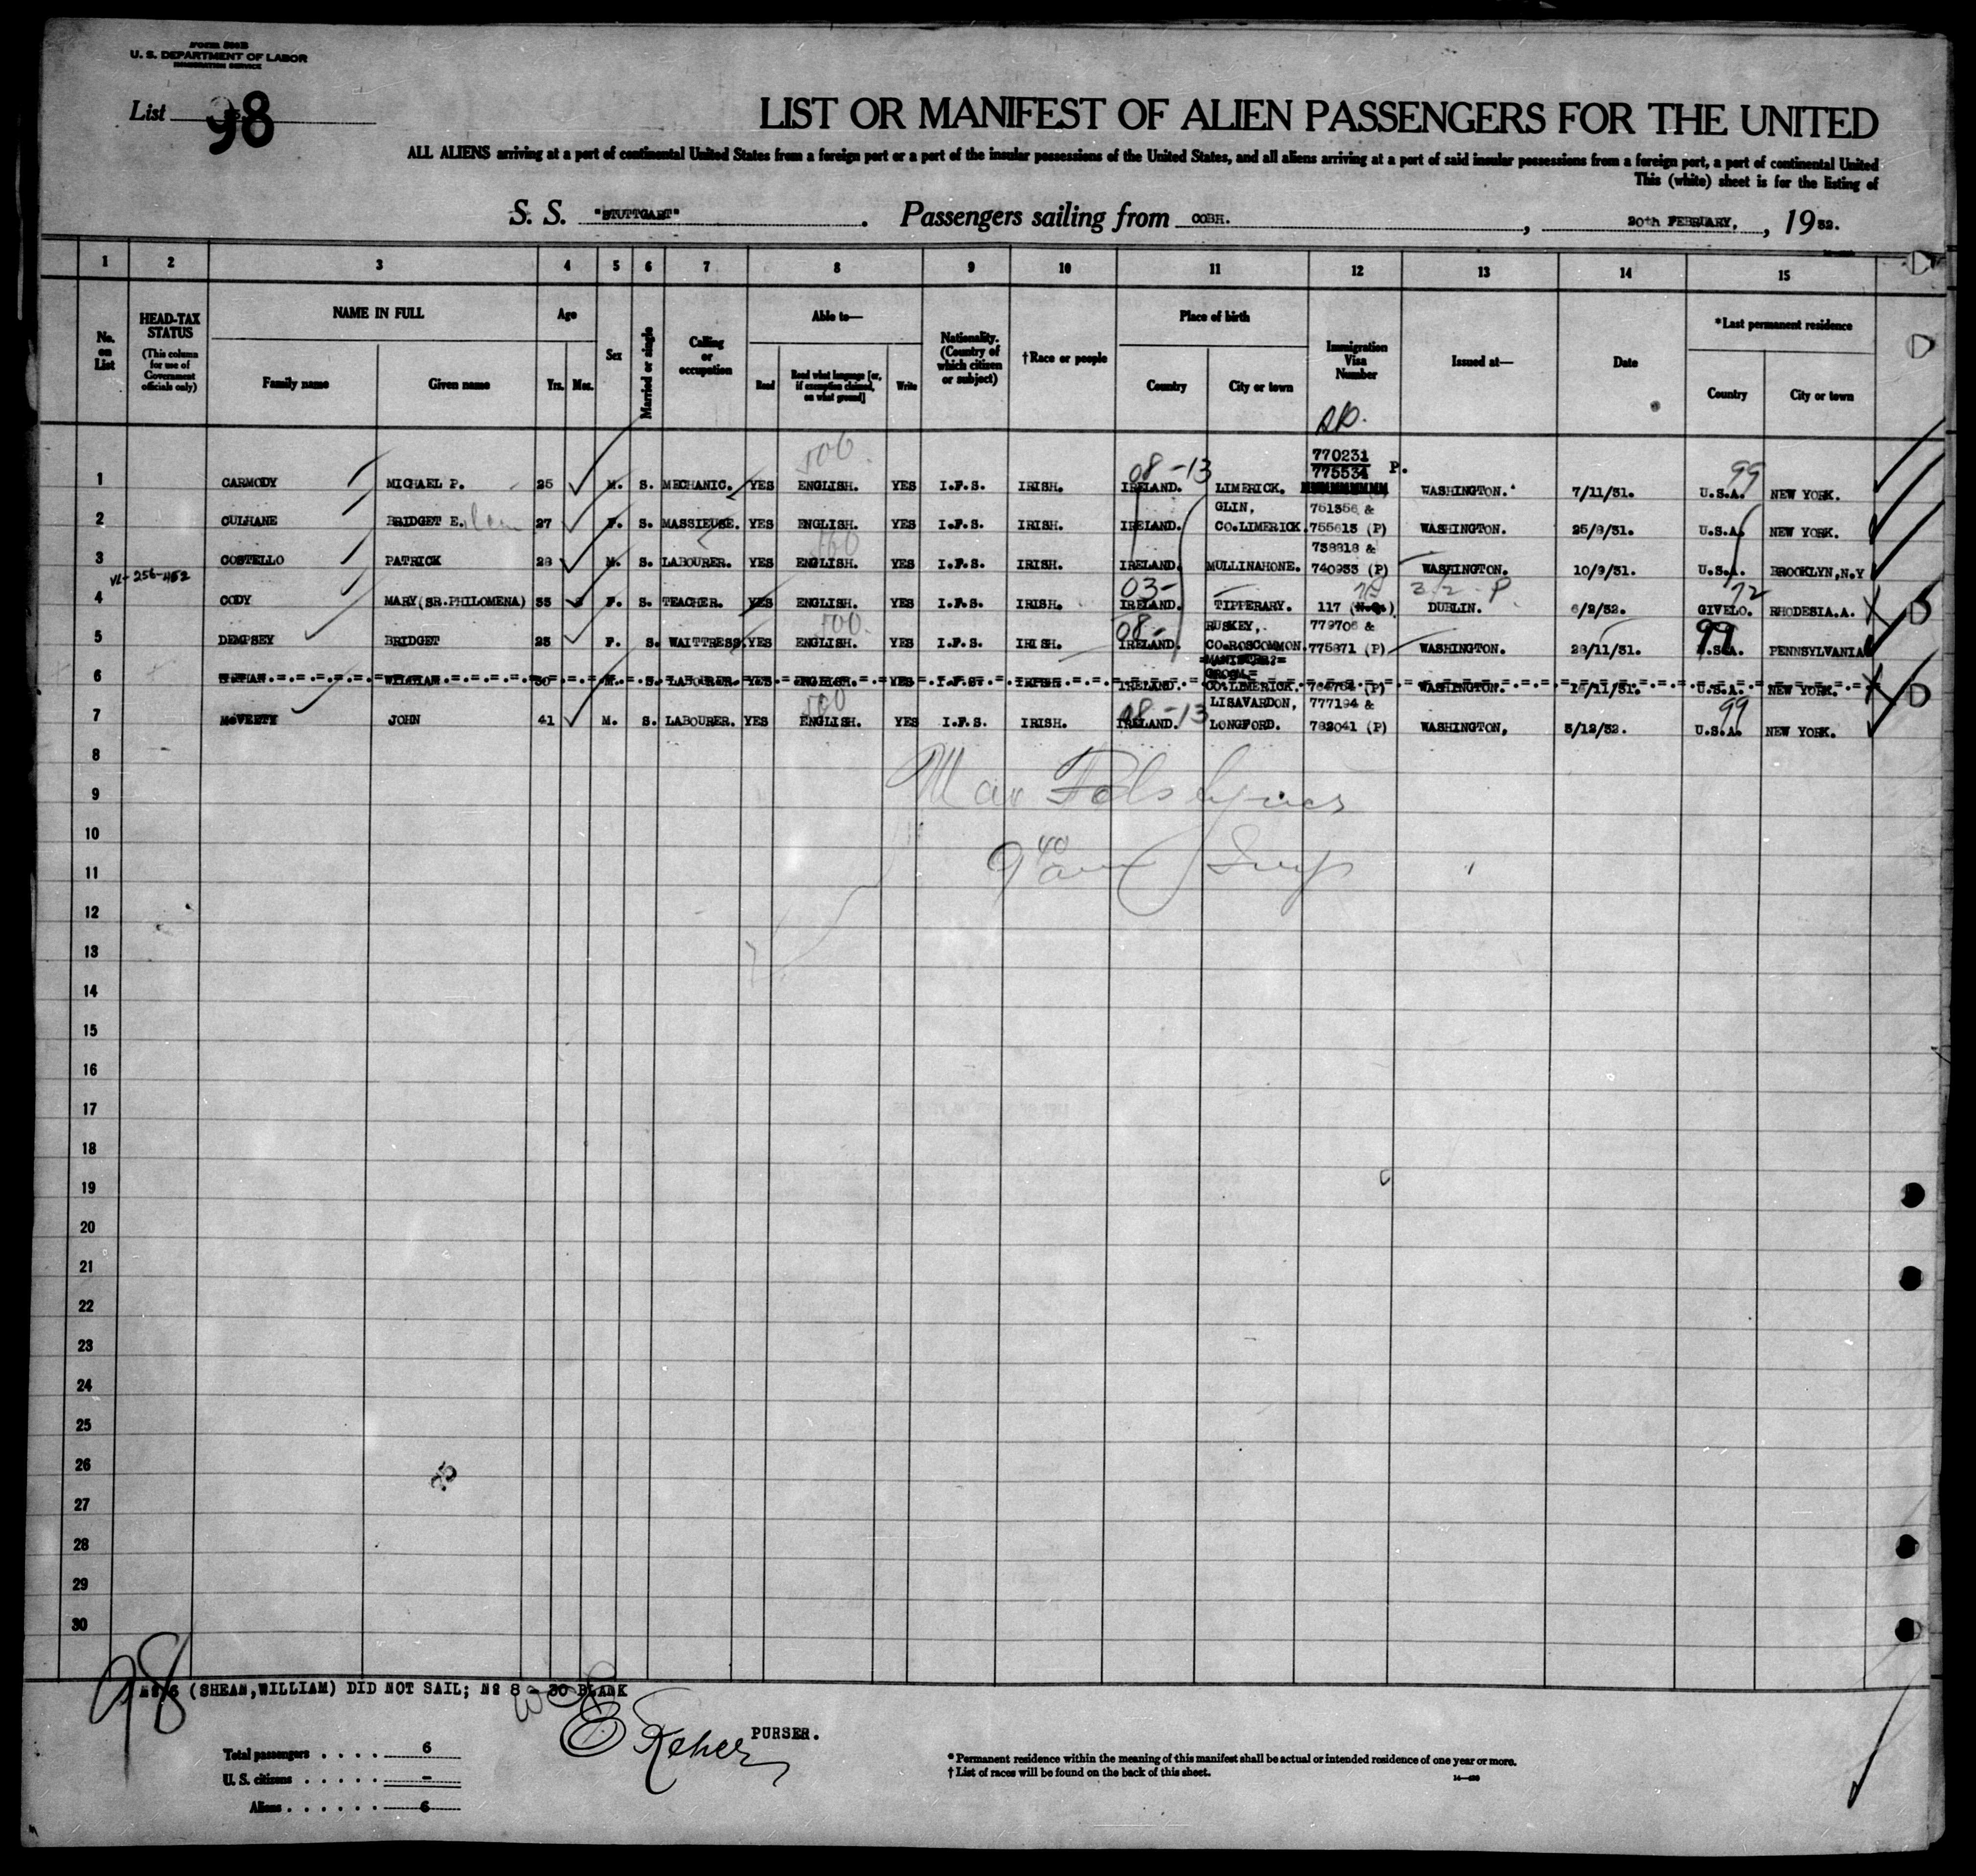 Form 500B
U. S. DEPARTMENT OF LABOR
IMMIGRATION SERVICE
List 98
LIST OR MANIFEST OF ALIEN PASSENGERS FOR THE UNITED
ALL ALIENS arriving at a port of continental United States from a foreign port or a port of the insular possessions of the United States, and all aliens arriving at a port of said insular possessions from a foreign port, a port of continental United
This (white) sheet is for the listing of
S. S. "STUTTGART". Passengers sailing from COBH. , 20th FEBRUARY, , 1932.
1 2 3 4 5 6 7 8 9 10 11 12 13 14 15
No. on List
HEAD-TAX STATUS (This column for use of Government officials only)
NAME IN FULL
Family name Given name
Age
Yrs. Mos.
Sex
Married or single
Calling or occupation
Able to—
Read Read what language [or, if exemption claimed, on what ground] Write
Nationality. (Country of which citizen or subject)
†Race or people
Place of birth
Country City or town
Immigration Visa Number
Issued at—
Date
*Last permanent residence
Country City or town
500 08-13 770231 99
1 CARMODY MICHAEL P. 25 M. S. MECHANIC. YES ENGLISH. YES I.F.S. IRISH. IRELAND. LIMERICK. 775534 P. WASHINGTON. 7/11/31. U.S.A. NEW YORK.
GLIN, 751356 &
2 CULHANE BRIDGET E. 27 F. S. MASSIEUSE. YES ENGLISH. YES I.F.S. IRISH. IRELAND. CO.LIMERICK. 755613 (P) WASHINGTON. 25/8/31. U.S.A. NEW YORK.
738818 &
3 COSTELLO PATRICK 28 M. S. LABOURER. YES ENGLISH. YES I.F.S. IRISH. IRELAND. MULLINAHONE. 740933 (P) WASHINGTON. 10/9/31. U.S.A. BROOKLYN,N.Y
03- 72
4 CODY MARY(SR.PHILOMENA) 33 F. S. TEACHER. YES ENGLISH. YES I.F.S. IRISH. IRELAND. TIPPERARY. 117 DUBLIN. 6/2/32. GIVELO. RHODESIA.A. D
500 08- RUSKEY, 779706 & 99
5 DEMPSEY BRIDGET 23 F. S. WAITTRESS. YES ENGLISH. YES I.F.S. IRISH. IRELAND. CO.ROSCOMMON. 775871 (P) WASHINGTON. 28/11/31. U.S.A. PENNSYLVANIA
6 WILLIAM M. S. LABOURER. YES ENGLISH. YES I.F.S. IRISH. IRELAND. CO.LIMERICK. (P) WASHINGTON. U.S.A. NEW YORK. D
500 08-13 LISAVARDON, 777194 & 99
7 McVERTY JOHN 41 M. S. LABOURER. YES ENGLISH. YES I.F.S. IRISH. IRELAND. LONGFORD. 782041 (P) WASHINGTON, 5/12/32. U.S.A. NEW YORK.
8
9
10
11
12
13
14
15
16
17
18
19
20
21
22
23
24
25
26
27
28
29
30
98
No 6 (SHEAN,WILLIAM) DID NOT SAIL; No 8 - 30 BLANK
PURSER.
Total passengers . . . . 6
U. S. citizens . . . . . –
Aliens . . . . . . 6
* Permanent residence within the meaning of this manifest shall be actual or intended residence of one year or more.
† List of races will be found on the back of this sheet.